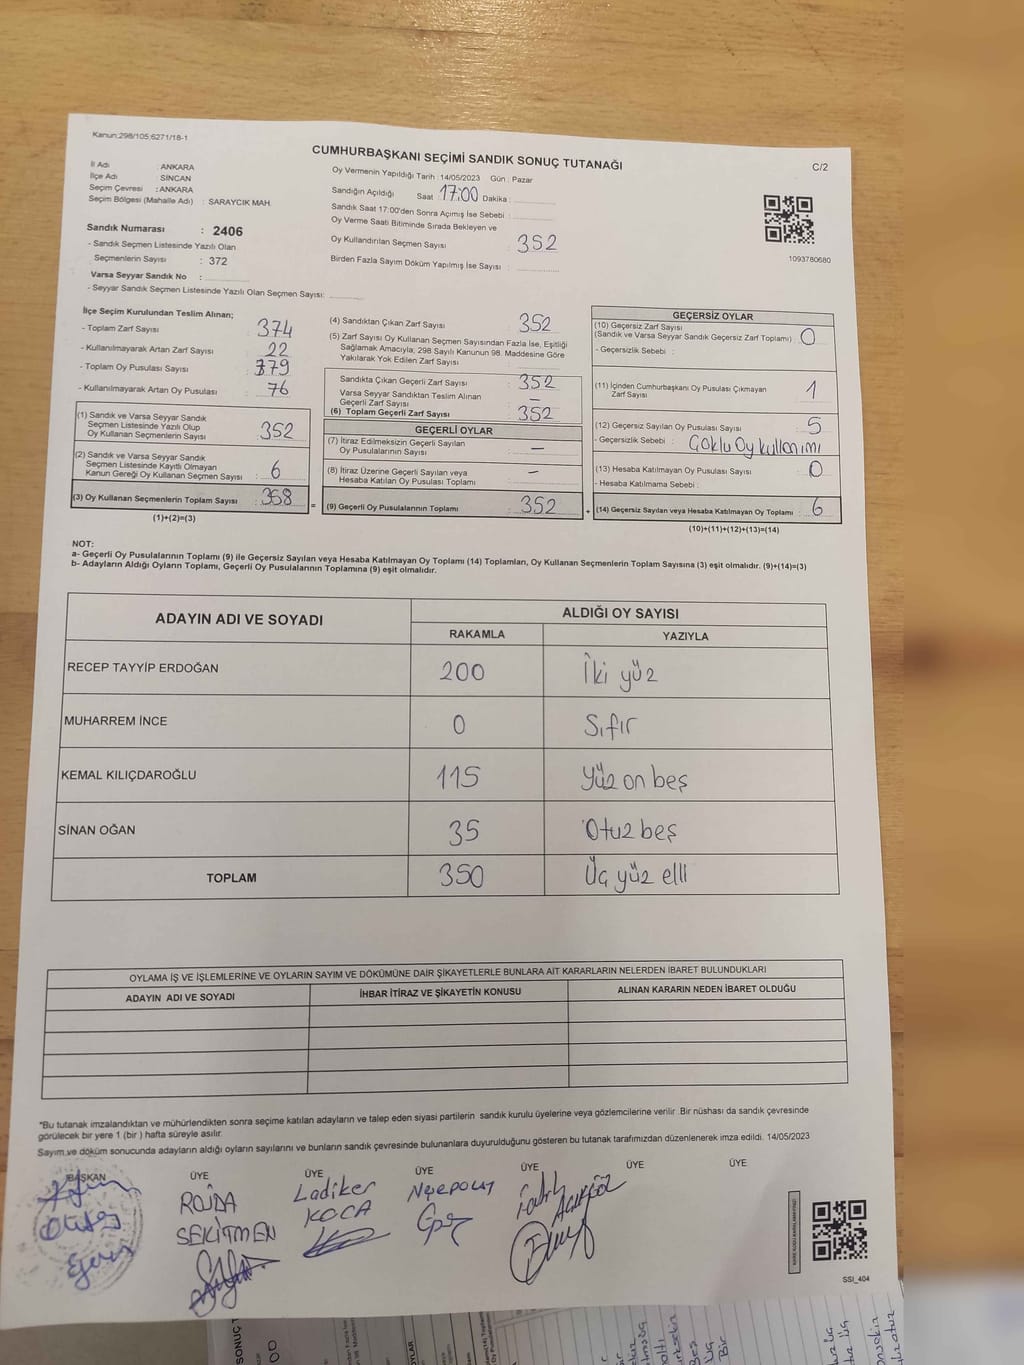 Kanun:298/105;6271/18-1
CUMHURBAŞKANI SEÇİMİ SANDIK SONUÇ TUTANAĞI
C/2
İl Adı : ANKARA
İlçe Adı : SİNCAN
Seçim Çevresi : ANKARA
Seçim Bölgesi (Mahalle Adı) : SARAYCIK MAH.
Sandık Numarası : 2406
- Sandık Seçmen Listesinde Yazılı Olan
Seçmenlerin Sayısı : 372
Varsa Seyyar Sandık No :
- Seyyar Sandık Seçmen Listesinde Yazılı Olan Seçmen Sayısı:
Oy Vermenin Yapıldığı Tarih : 14/05/2023 Gün : Pazar
Sandığın Açıldığı Saat 17:00 Dakika :
Sandık Saat 17:00'den Sonra Açımış İse Sebebi :
Oy Verme Saati Bitiminde Sırada Bekleyen ve
Oy Kullandırılan Seçmen Sayısı : 352
Birden Fazla Sayım Döküm Yapılmış İse Sayısı :
1093780680
İlçe Seçim Kurulundan Teslim Alınan;
- Toplam Zarf Sayısı : 374
- Kullanılmayarak Artan Zarf Sayısı : 22
- Toplam Oy Pusulası Sayısı : 379
- Kullanılmayarak Artan Oy Pusulası : 76
(1) Sandık ve Varsa Seyyar Sandık
Seçmen Listesinde Yazılı Olup
Oy Kullanan Seçmenlerin Sayısı : 352
(2) Sandık ve Varsa Seyyar Sandık
Seçmen Listesinde Kayıtlı Olmayan
Kanun Gereği Oy Kullanan Seçmen Sayısı : 6
(3) Oy Kullanan Seçmenlerin Toplam Sayısı : 358
(1)+(2)=(3)
(4) Sandıktan Çıkan Zarf Sayısı : 352
(5) Zarf Sayısı Oy Kullanan Seçmen Sayısından Fazla İse, Eşitliği
Sağlamak Amacıyla; 298 Sayılı Kanunun 98. Maddesine Göre
Yakılarak Yok Edilen Zarf Sayısı :
Sandıkta Çıkan Geçerli Zarf Sayısı : 352
Varsa Seyyar Sandıktan Teslim Alınan
Geçerli Zarf Sayısı : –
(6) Toplam Geçerli Zarf Sayısı : 352
GEÇERLİ OYLAR
(7) İtiraz Edilmeksizin Geçerli Sayılan
Oy Pusulalarının Sayısı : –
(8) İtiraz Üzerine Geçerli Sayılan veya
Hesaba Katılan Oy Pusulası Toplamı : –
= (9) Geçerli Oy Pusulalarının Toplamı : 352
GEÇERSİZ OYLAR
(10) Geçersiz Zarf Sayısı
(Sandık ve Varsa Seyyar Sandık Geçersiz Zarf Toplamı) : 0
- Geçersizlik Sebebi :
(11) İçinden Cumhurbaşkanı Oy Pusulası Çıkmayan
Zarf Sayısı : 1
(12) Geçersiz Sayılan Oy Pusulası Sayısı : 5
- Geçersizlik Sebebi : Çoklu Oy kullanımı
(13) Hesaba Katılmayan Oy Pusulası Sayısı : 0
- Hesaba Katılmama Sebebi :
+ (14) Geçersiz Sayılan veya Hesaba Katılmayan Oy Toplamı : 6
(10)+(11)+(12)+(13)=(14)
NOT:
a- Geçerli Oy Pusulalarının Toplamı (9) ile Geçersiz Sayılan veya Hesaba Katılmayan Oy Toplamı (14) Toplamları, Oy Kullanan Seçmenlerin Toplam Sayısına (3) eşit olmalıdır. (9)+(14)=(3)
b- Adayların Aldığı Oyların Toplamı, Geçerli Oy Pusulalarının Toplamına (9) eşit olmalıdır.
ADAYIN ADI VE SOYADI ALDIĞI OY SAYISI
RAKAMLA YAZIYLA
RECEP TAYYİP ERDOĞAN 200 İki yüz
MUHARREM İNCE 0 Sıfır
KEMAL KILIÇDAROĞLU 115 Yüz on beş
SİNAN OĞAN 35 Otuz beş
TOPLAM 350 Üç yüz elli
OYLAMA İŞ VE İŞLEMLERİNE VE OYLARIN SAYIM VE DÖKÜMÜNE DAİR ŞİKAYETLERLE BUNLARA AİT KARARLARIN NELERDEN İBARET BULUNDUKLARI
ADAYIN ADI VE SOYADI İHBAR İTİRAZ VE ŞİKAYETİN KONUSU ALINAN KARARIN NEDEN İBARET OLDUĞU
*Bu tutanak imzalandıktan ve mühürlendikten sonra seçime katılan adayların ve talep eden siyasi partilerin sandık kurulu üyelerine veya gözlemcilerine verilir. Bir nüshası da sandık çevresinde
görülecek bir yere 1 (bir ) hafta süreyle asılır.
Sayım ve döküm sonucunda adayların aldığı oyların sayılarını ve bunların sandık çevresinde bulunanlara duyurulduğunu gösteren bu tutanak tarafımızdan düzenlenerek imza edildi. 14/05/2023
BAŞKAN ÜYE ÜYE ÜYE ÜYE ÜYE ÜYE
ROJDA
SEKİTMEN
Ladiker
KOCA
Fatih
AÇIKGÖZ
SSI_404